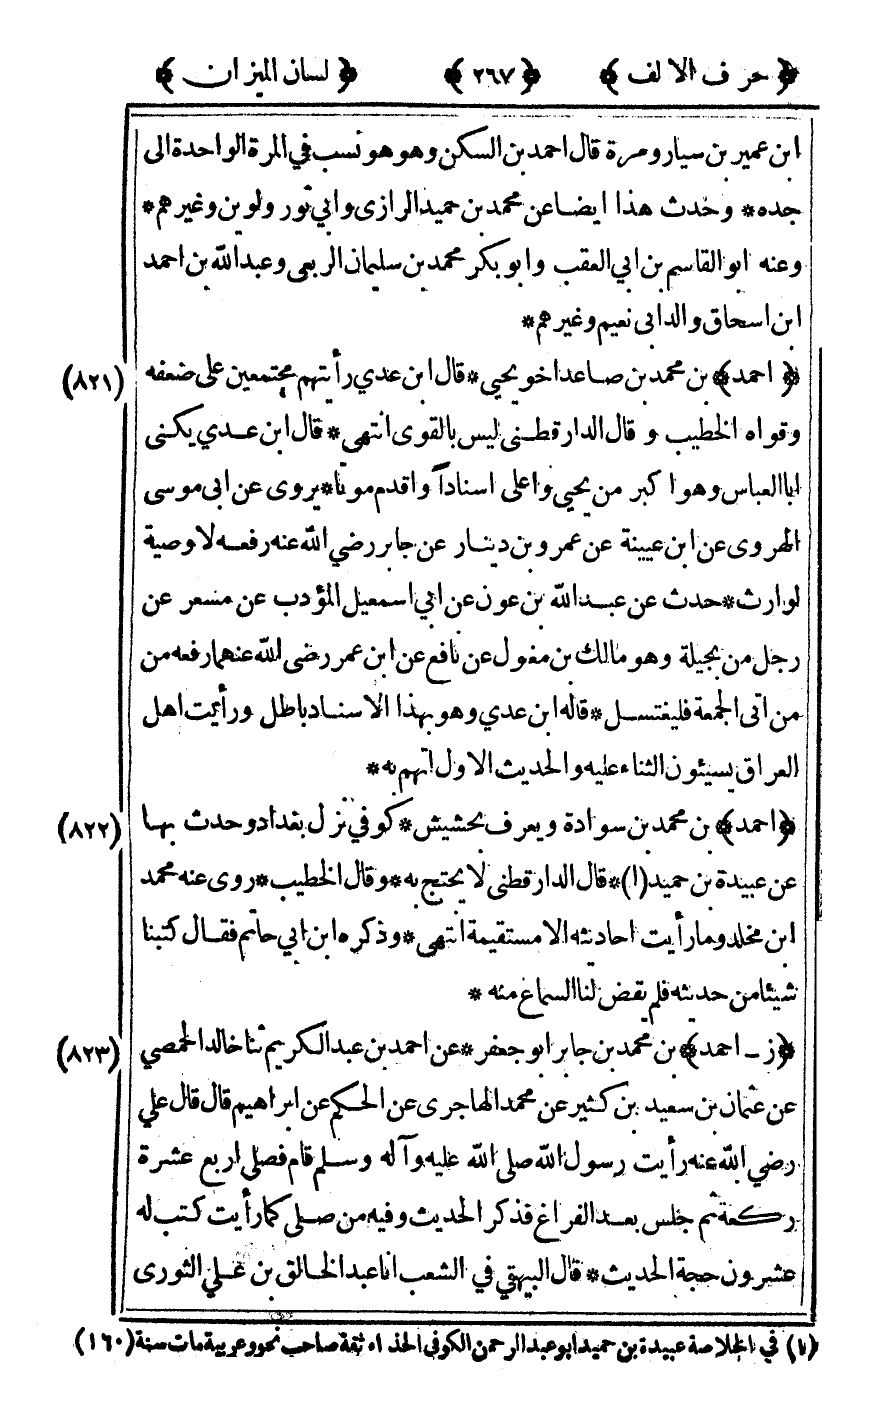 ﴿ حرف الالف ﴾ ﴿ ٢٦٧ ﴾ ﴿ لسان الميزان ﴾
ابن عمير بن سيار ومرة قال احمد بن السكن وهو هو نسب في المرة الواحدة الى
جده * وحدث هذا ايضا عن محمد بن حميد الرازى وابي ثور ولوين وغيرهم *
وعنه ابو القاسم بن ابي العقب وابو بكر محمد بن سليمان الربعى وعبد الله بن احمد
ابن اسحاق والد ابى نعيم وغيرهم *
﴿ احمد ﴾ بن محمد بن صاعد اخو يحيى * قال ابن عدي رأيتهم مجتمعين على ضعفه (٨٢١)
وقواه الخطيب و قال الدار قطنى ليس بالقوى انتهى * قال ابن عدي يكنى
ابا العباس وهو اكبر من يحيى واعلى اسناداً واقدم موتا * يروى عن ابى موسى
الهروى عن ابن عيينة عن عمرو بن دينار عن جابر رضي الله عنه رفعه لا وصية
لوارث * حدث عن عبد الله بن عون عن ابي اسمعيل المؤدب عن مسعر عن
رجل من بجيلة وهو مالك بن مغول عن نافع عن ابن عمر رضى الله عنهما رفعه من
من اتى الجمعة فليغتسل * قاله ابن عدي وهو بهذا الاسناد باطل ورأيت اهل
العراق يسيئون الثناء عليه والحديث الاول اتهم به *
﴿ احمد ﴾ بن محمد بن سوادة ويعرف بحشيش * كوفي نزل بغداد وحدث بها (٨٢٢)
عن عبيدة بن حميد (١) * قال الدار قطنى لا يحتج به * وقال الخطيب * روى عنه محمد
ابن مخلد وما رأيت احاديثه الا مستقيمة انتهى * وذكره ابن ابي حاتم فقال كتبنا
شيئا من حديثه فلم يقض لنا السماع منه *
﴿ ز ـ احمد ﴾ بن محمد بن جابر ابو جعفر * عن احمد بن عبد الكريم ثنا خالد الحمصي (٨٢٣)
عن عثمان بن سعيد بن كثير عن محمد الهاجرى عن الحكم عن ابراهيم قال قال علي
رضي الله عنه رأيت رسول الله صلى الله عليه وآله وسلم قام فصلى اربع عشرة
ركعة ثم جلس بعد الفراغ فذكر الحديث وفيه من صلى كما رأيت كتب له
عشرون حجة الحديث * قال البيهقي في الشعب انا عبد الخالق بن علي الثورى
(١) في الخلاصة عبيدة بن حميد ابو عبد الرحمن الكوفى الحذاء ثقة صاحب نحو وعربية مات سنة (١٦٠)